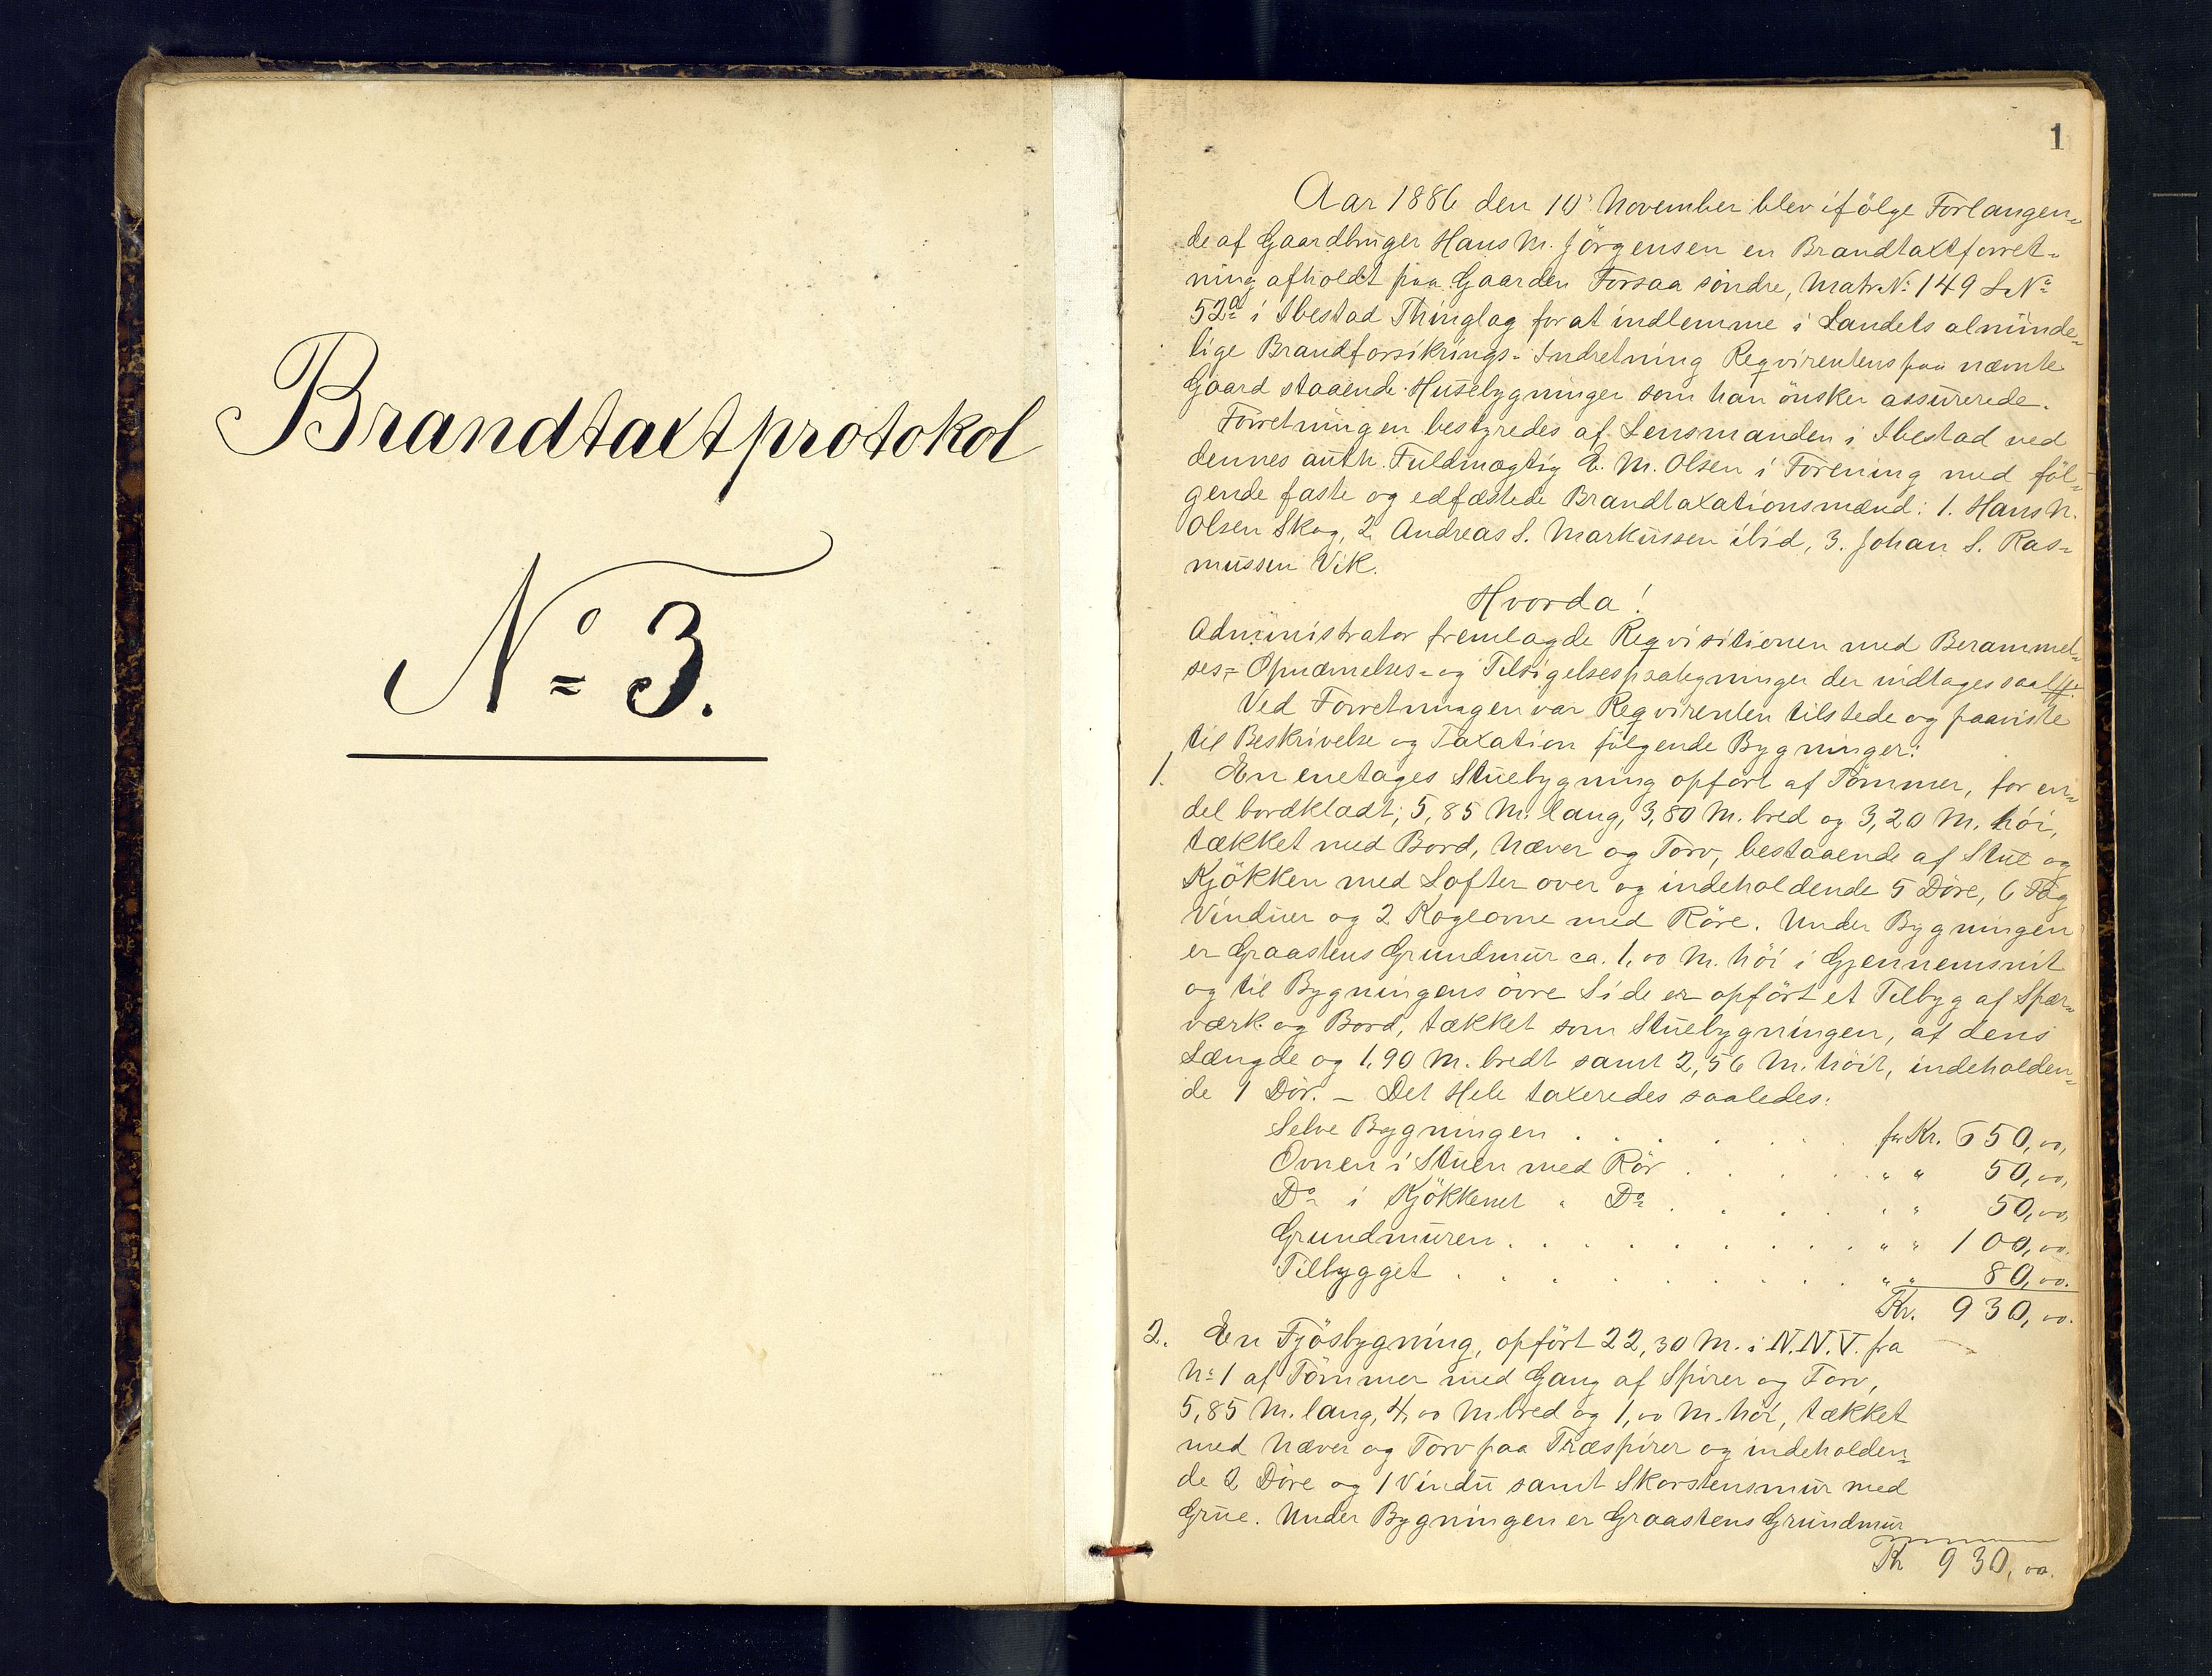 Brandtaxtprotokol
No 3.
1
Aar 1886 den 10' November blev ifölge Forlangen=
de af Gaardbruger Hans M. Jörgensen en Brandtaxtforret=
ning afholdt paa Gaarden Forsaa söndre, Matr.No 149 L.No
52a i Ibestad Thinglag for at indlemme i Landets almünde=
lige Brandforsikrings-Indretning Reqvirentens paa nævnte
Gaard staaende Husebygninger som han önsker assurerede.
Forretningen bestyredes af Lensmanden i Ibestad ved
dennes auth. Fuldmægtig E. M. Olsen i Forening med föl=
gende faste og edfæstede Brandtaxationsmænd: 1. Hans N.
Olsen Skog, 2. Andreas S. Markussen ibid, 3. Johan S. Ras=
mussen Vik.
Hvorda!
Administrator fremlagde Reqvisitionen med Berammel=
ses= Opnævnelses= og Tilsigelsespaategninger der indtages saal.
Ved Forretningen var Reqvirenten tilstede og paaviste
til Beskrivelse og Taxation fölgende Bygninger:
1. En enetages Stuebygning opfört af Tömmer, for en=
del bordklædt, 5,85 M. lang, 3,80 M. bred og 3,20 M. höi,
tækket med Bord, Næver og Torv, bestaaende af Stue og
Kjökken med Lofter over og indeholdende 5 Döre, 6 Fag
Vinduer og 2 Kogeovne med Röre. Under Bygningen
er Graastens Grundmur ca. 1,00 M. höi i Gjennemsnit
og til Bygningens övre Side er opfört et Tilbyg af Spær=
værk og Bord, tækket som Stuebygningen, af dens
Længde og 1,90 M. bredt samt 2,56 M. höit, indeholden=
de 1 Dör. – Det Hele taxeredes saaledes:
Selve Bygningen . . . . . for Kr. 650,00,
Ovnen i Stuen med Rör . . . . . " " 50,00,
Do i Kjökkenet " Do . . . . . " " 50,00,
Grundmuren . . . . . . . . . " " 100,00.
Tilbygget . . . . . . . . . " " 80,00.
Kr. 930,00.
2. En Fjösbygning, opfört 22,30 M. i N.N.V. fra
No 1 af Tömmer med Gang af Spirer og Torv,
5,85 M. lang, 4,00 M bred og 1,00 M. höi, tækket
med Næver og Torv paa Træspirer og indeholden=
de 2 Döre og 1 Vindu samt Skorstensmur med
Grue. Under Bygningen er Graastens Grundmur
Kr 930,00.